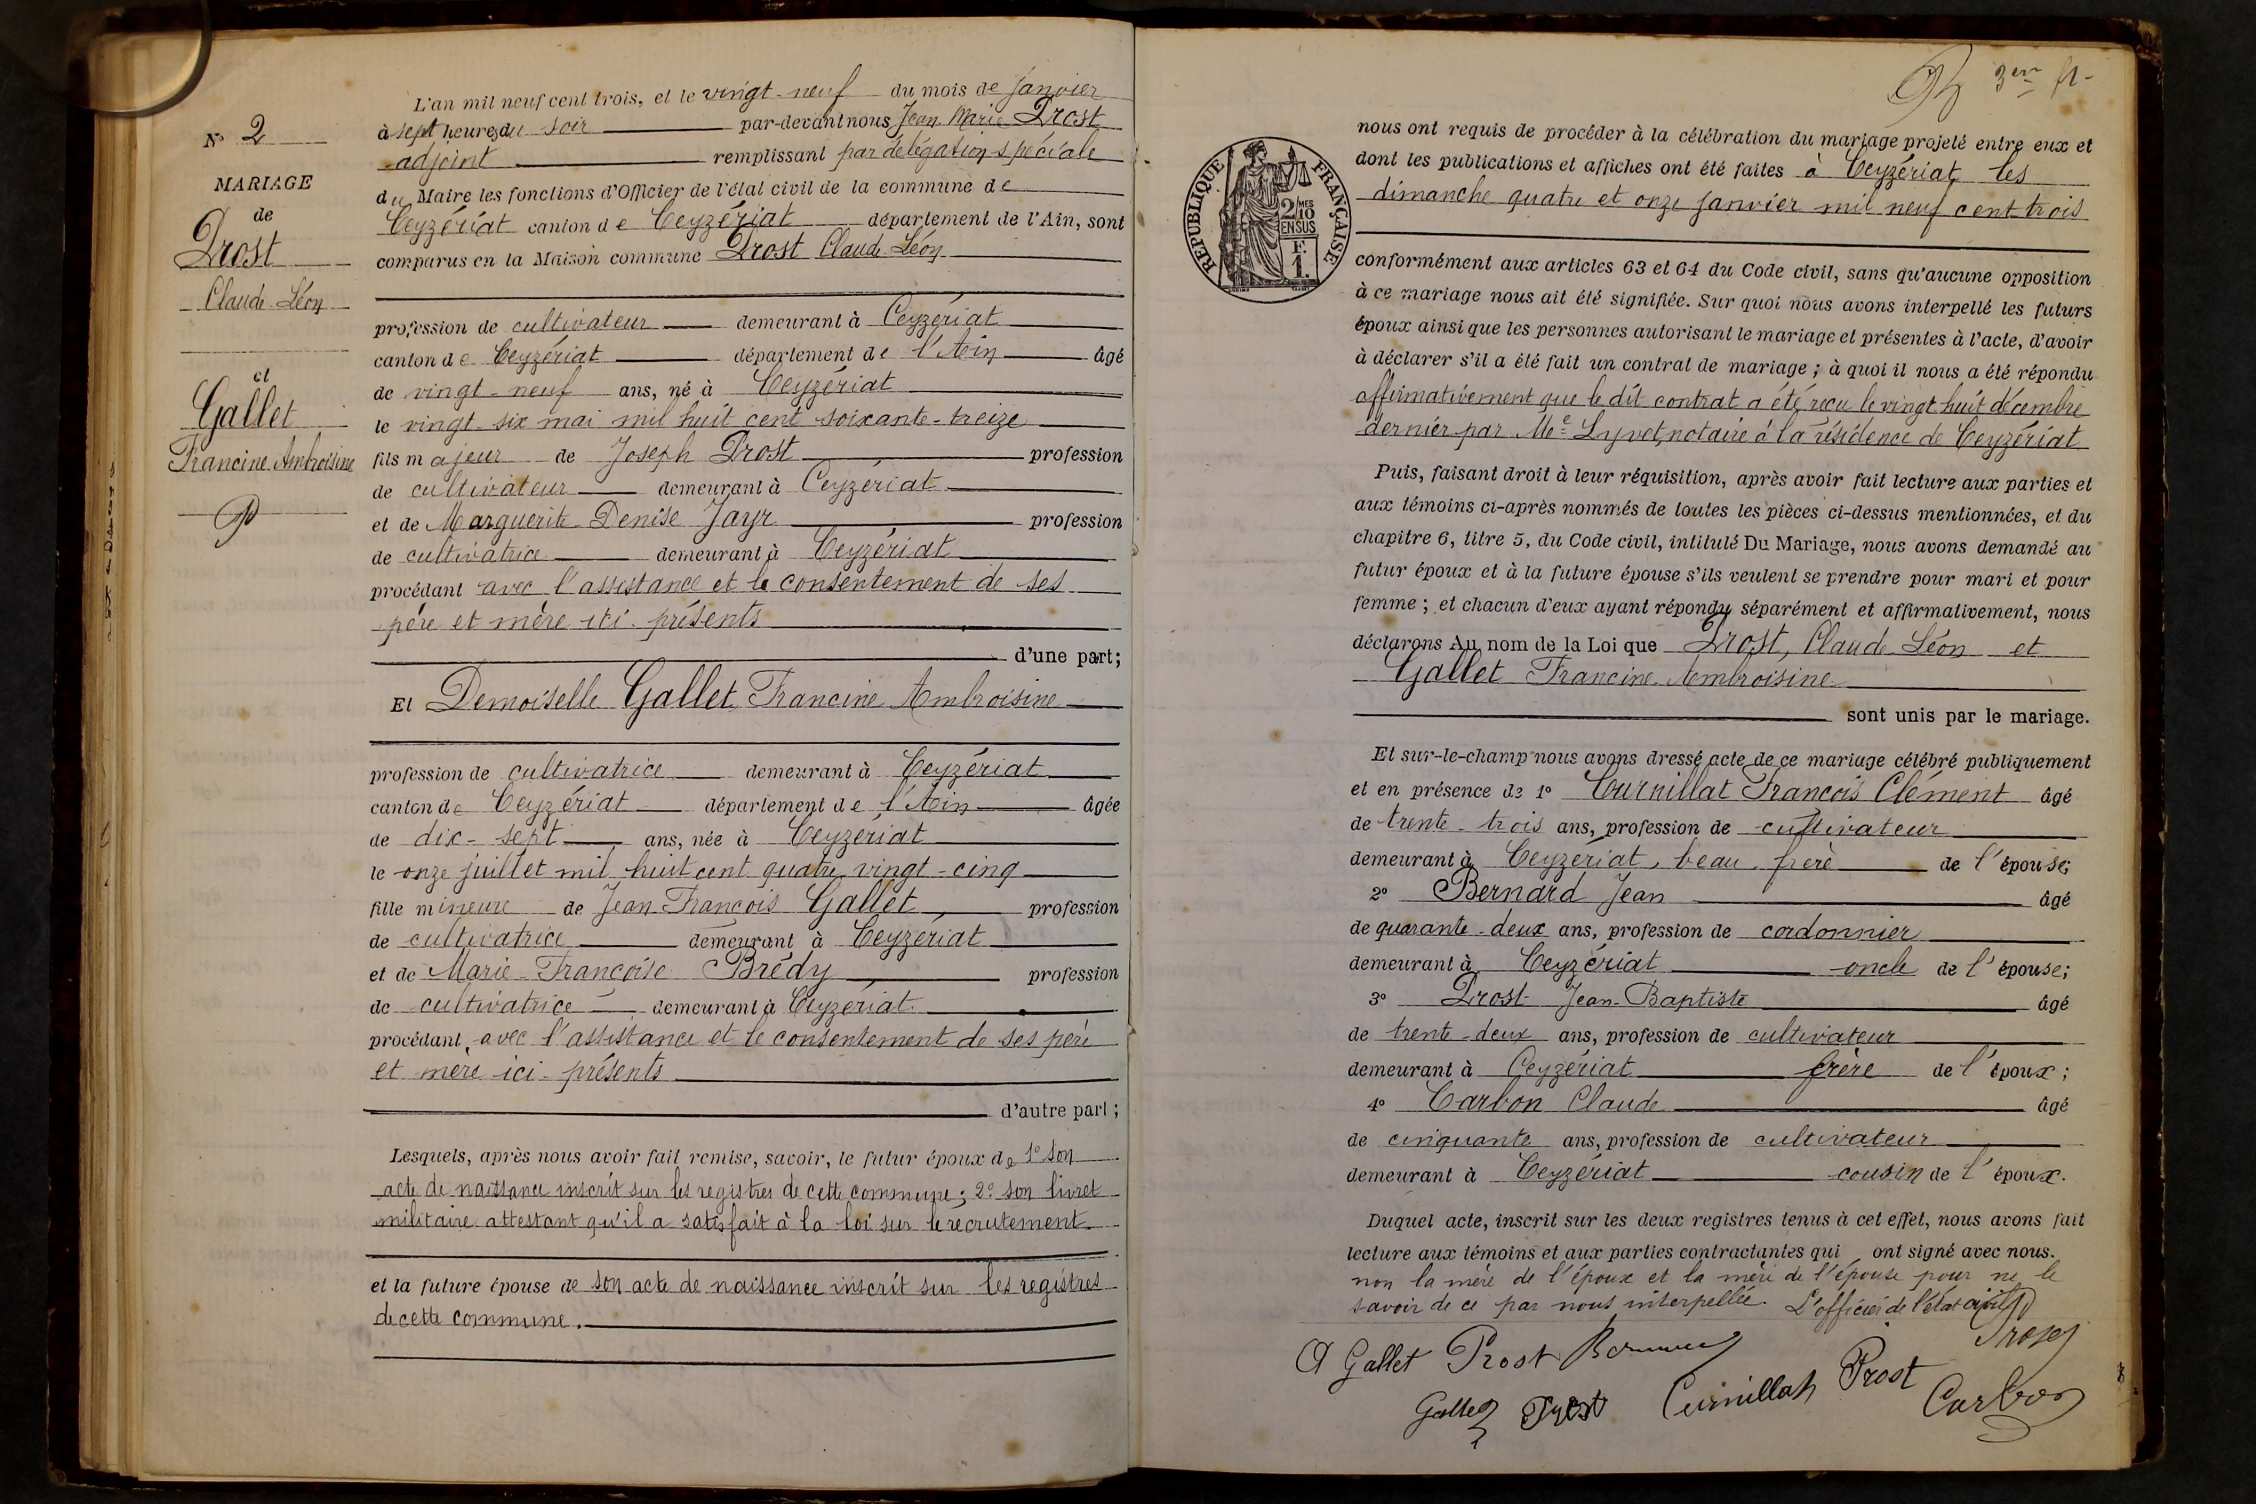 L'an mil neuf cent trois, et le vingt-neuf du mois de janvier
à sept heures du soir par-devant nous Jean Marie Prost
adjoint remplissant par délégation spéciale
du Maire les fonctions d'Officier de l'état civil de la commune de
Ceyzériat canton de Ceyzériat département de l'Ain, sont
comparus en la Maison commune Prost Claude Léon
profession de cultivateur demeurant à Ceyzériat
canton de Ceyzériat département de l'Ain âgé
de vingt-neuf ans, né à Ceyzériat
le vingt-six mai mil huit cent soixante-treize
fils majeur de Joseph Prost profession
de cultivateur demeurant à Ceyzériat
et de Marguerite Denise Jayr profession
de cultivatrice demeurant à Ceyzériat
procédant avec l'assistance et le consentement de ses
père et mère ici-présents
d'une part;
Et Demoiselle Gallet Francine Ambroisine
profession de cultivatrice demeurant à Ceyzériat
canton de Ceyzériat département de l'Ain âgée
de dix-sept ans, née à Ceyzériat
le onze juillet mil huit cent quatre vingt-cinq
fille mineure de Jean François Gallet profession
de cultivatrice demeurant à Ceyzériat
et de Marie-Françoise Brédy profession
de cultivatrice demeurant à Ceyzériat
procédant avec l'assistance et le consentement de ses père
et mère ici-présents
d'autre part;
Lesquels, après nous avoir fait remise, savoir, le futur époux de 1º son
acte de naissance inscrit sur les registres de cette commune; 2º son livret
militaire attestant qu'il a satisfait à la loi sur le recrutement.
et la future épouse de son acte de naissance inscrit sur les registres
de cette commune.
Nº 2
MARIAGE
de
Prost
Claude Léon
et
Gallet
Francine Ambroisine
nous ont requis de procéder à la célébration du mariage projeté entre eux et
dont les publications et affiches ont été faites à Ceyzériat les
dimanche quatre et onze janvier mil neuf cent trois
conformément aux articles 63 et 64 du Code civil, sans qu'aucune opposition
à ce mariage nous ait été signifiée. Sur quoi nous avons interpellé les futurs
époux ainsi que les personnes autorisant le mariage et présentes à l'acte, d'avoir
à déclarer s'il a été fait un contrat de mariage; à quoi il nous a été répondu
affirmativement que le dit contrat a été reçu le vingt huit décembre
dernier par Me Lyvet, notaire à la résidence de Ceyzériat
Puis, faisant droit à leur réquisition, après avoir fait lecture aux parties et
aux témoins ci-après nommés de toutes les pièces ci-dessus mentionnées, et du
chapitre 6, titre 5, du Code civil, intitulé Du Mariage, nous avons demandé au
futur époux et à la future épouse s'ils veulent se prendre pour mari et pour
femme; et chacun d'eux ayant répondu séparément et affirmativement, nous
déclarons Au nom de la Loi que Prost, Claude Léon et
Gallet Francine Ambroisine
sont unis par le mariage.
Et sur-le-champ nous avons dressé acte de ce mariage célébré publiquement
et en présence de 1º Curnillat François Clément âgé
de trente-trois ans, profession de cultivateur
demeurant à Ceyzériat, beau-frère de l'épouse;
2º Bernard Jean âgé
de quarante-deux ans, profession de cordonnier
demeurant à Ceyzériat oncle de l'épouse;
3º Prost Jean-Baptiste âgé
de trente-deux ans, profession de cultivateur
demeurant à Ceyzériat frère de l'époux;
4º Carbon Claude âgé
de cinquante ans, profession de cultivateur
demeurant à Ceyzériat cousin de l'époux.
Duquel acte, inscrit sur les deux registres tenus à cet effet, nous avons fait
lecture aux témoins et aux parties contractantes qui ont signé avec nous.
non la mère de l'époux et la mère de l'épouse pour ne le
savoir de ce par nous interpellée. L'officier de l'état civil
Prost
A Gallet Prost
Gallet Prost Curnillat Prost Carbon
RÉPUBLIQUE FRANÇAISE
2/10 MES
EN SUS
F.
1.